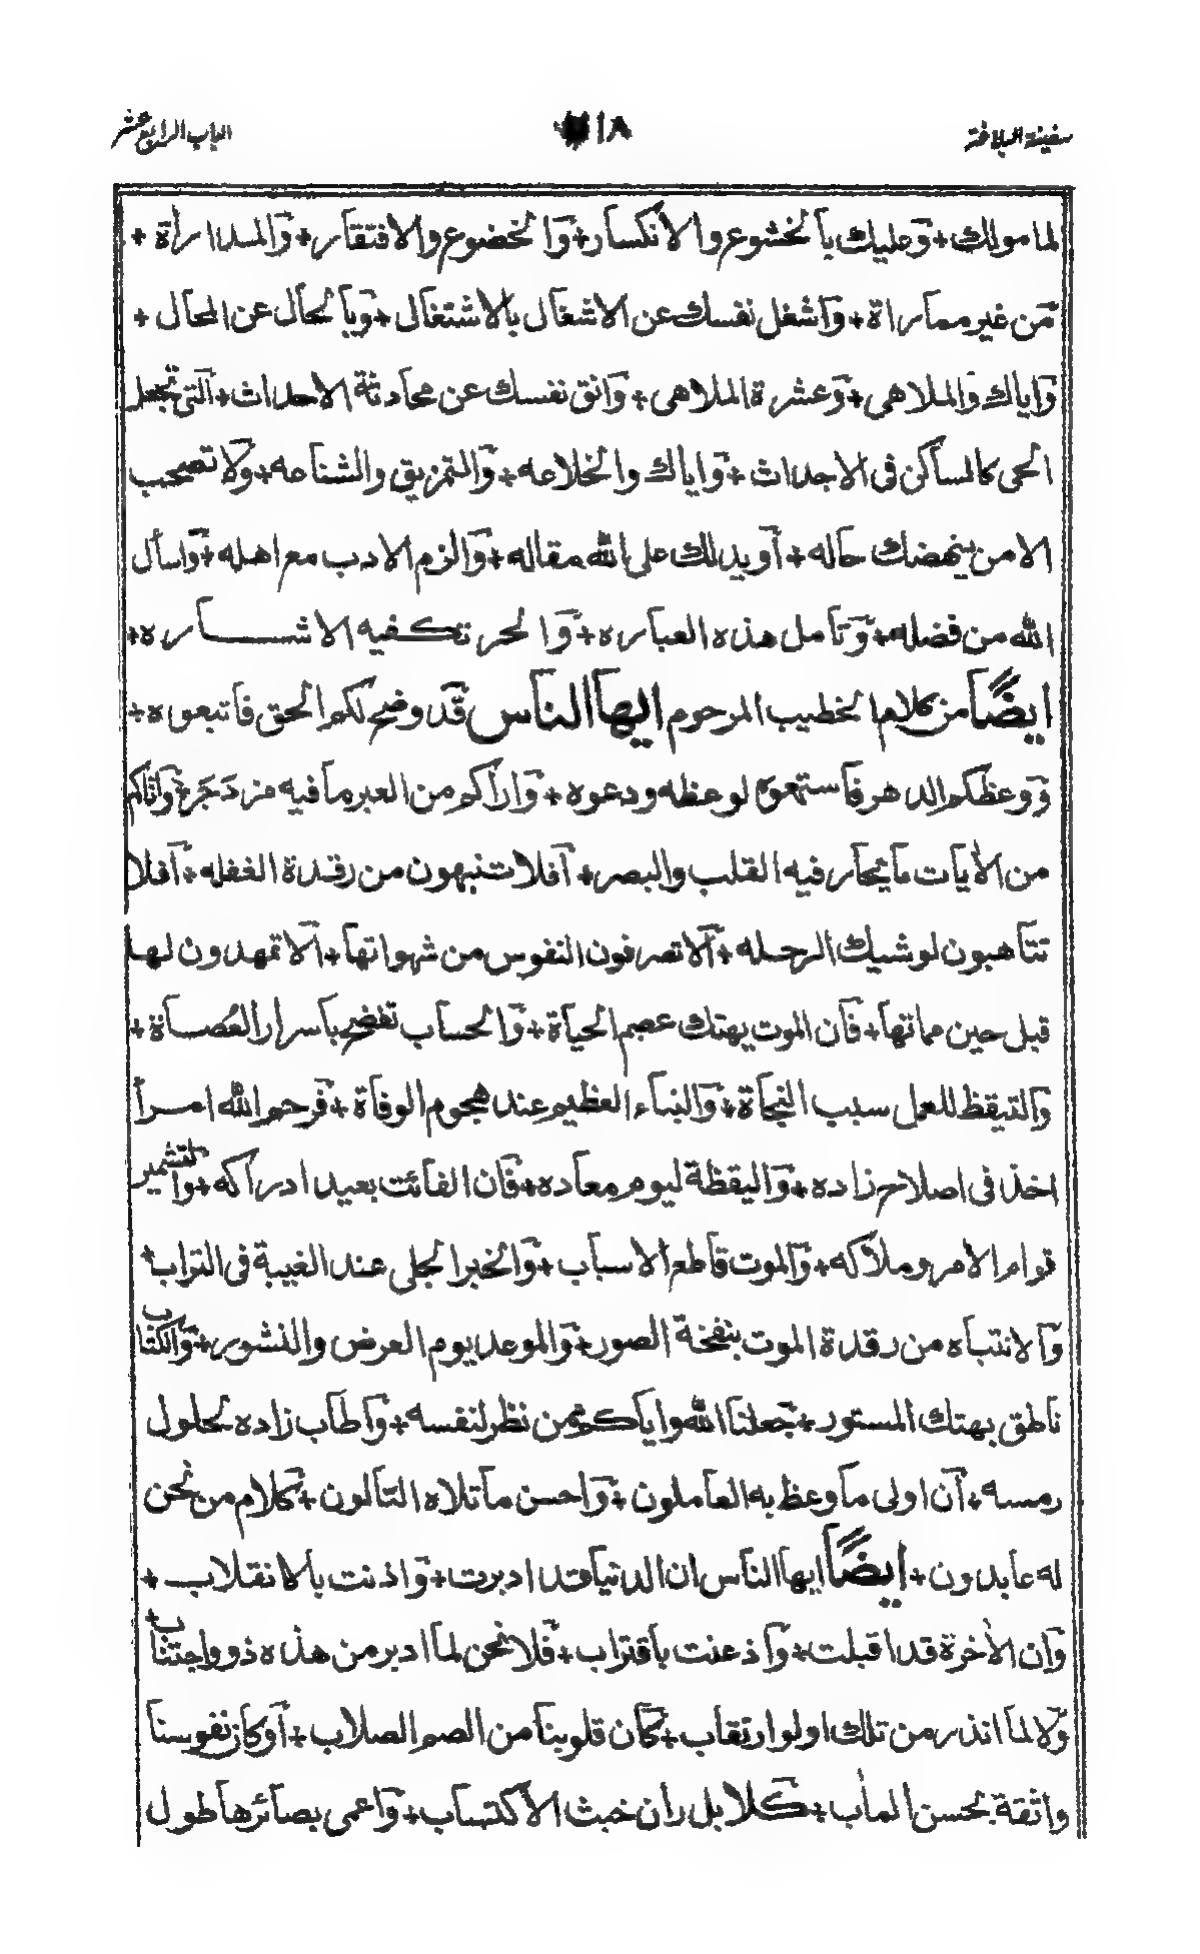 سفينة البلاغة ٧١٨ الباب الرابع عشر
لما مولك + وعليك بالخشوع والانكسار + والخضوع والافتقار + والمداراة +
من غير مماراة + واشغل نفسك عن الاشغال بالاشتغال + وبالحال عن المحال +
واياك والملاهي + وعشرة الملاهي + وانق نفسك عن محادثة الاحداث + التي تجعل
الحى كالساكن فى الاجداث + واياك والخلاعه + والتمزيق والشناعه + ولا تصحب
الا من ينهضك حاله + أو يدلك على الله مقاله + والزم الادب مع اهله + واسأل
الله من فضله + وتأمل هذه العباره + والحر تكفيه الاشاره +
ايضًا من كلام الخطيب المرحوم ايها الناس قد وضح لكم الحق فاتبعوه +
ووعظكم الدهر فاستمعوه لوعظه ودعوه + واراكم من العبر ما فيه مزدجر + واتاكم
من الأيات ما يحار فيه القلب والبصر + أفلا تنبهون من رقدة الغفله + أفلا
تتأهبون لوشيك الرحله + ألا تصرفون النفوس من شهواتها + ألا تمهدون لها
قبل حين مماتها + فأن الموت يهتك عصم الحياة + والحساب تفضح باسرار العُصاة +
والتيقظ للعمل سبب النجاة + والنباء العظيم عند هجوم الوفاة + فرحم الله امرأ
اخذ فى اصلاح زاده + واليقظة ليوم معاده + فأن الفائت بعيد ادراكه + والتشمير
قوام الامر وملاكه + والموت قاطع الاسباب + والخبر الجلى عند الغيبة فى التراب +
والانتباه من رقدة الموت بنفخة الصور + والموعد يوم العرض والنشور + والكتاب
ناطق بهتك المستور + جعلنا الله واياكم ممن نظر لنفسه + واطاب زاده لحلول
رمسه + أن اولى ما وعظ به العاملون + واحسن ما تلاه التالون + كلام من نحن
له عابدون + ايضًا ايها الناس ان الدنيا قد ادبرت + واذنت بالانقلاب +
وان الأخرة قد اقبلت + واذعنت باقتراب + فلا نحن لما ادبر من هذه ذوو اجتناب +
ولا لما انذر من تلك اولوا رتقاب + كأن قلوبنا من الصم الصلاب + أو كان نفوسنا
واثقة بحسن المأب + كلا بل ران خبث الاكتساب + واعمى بصائرها طول